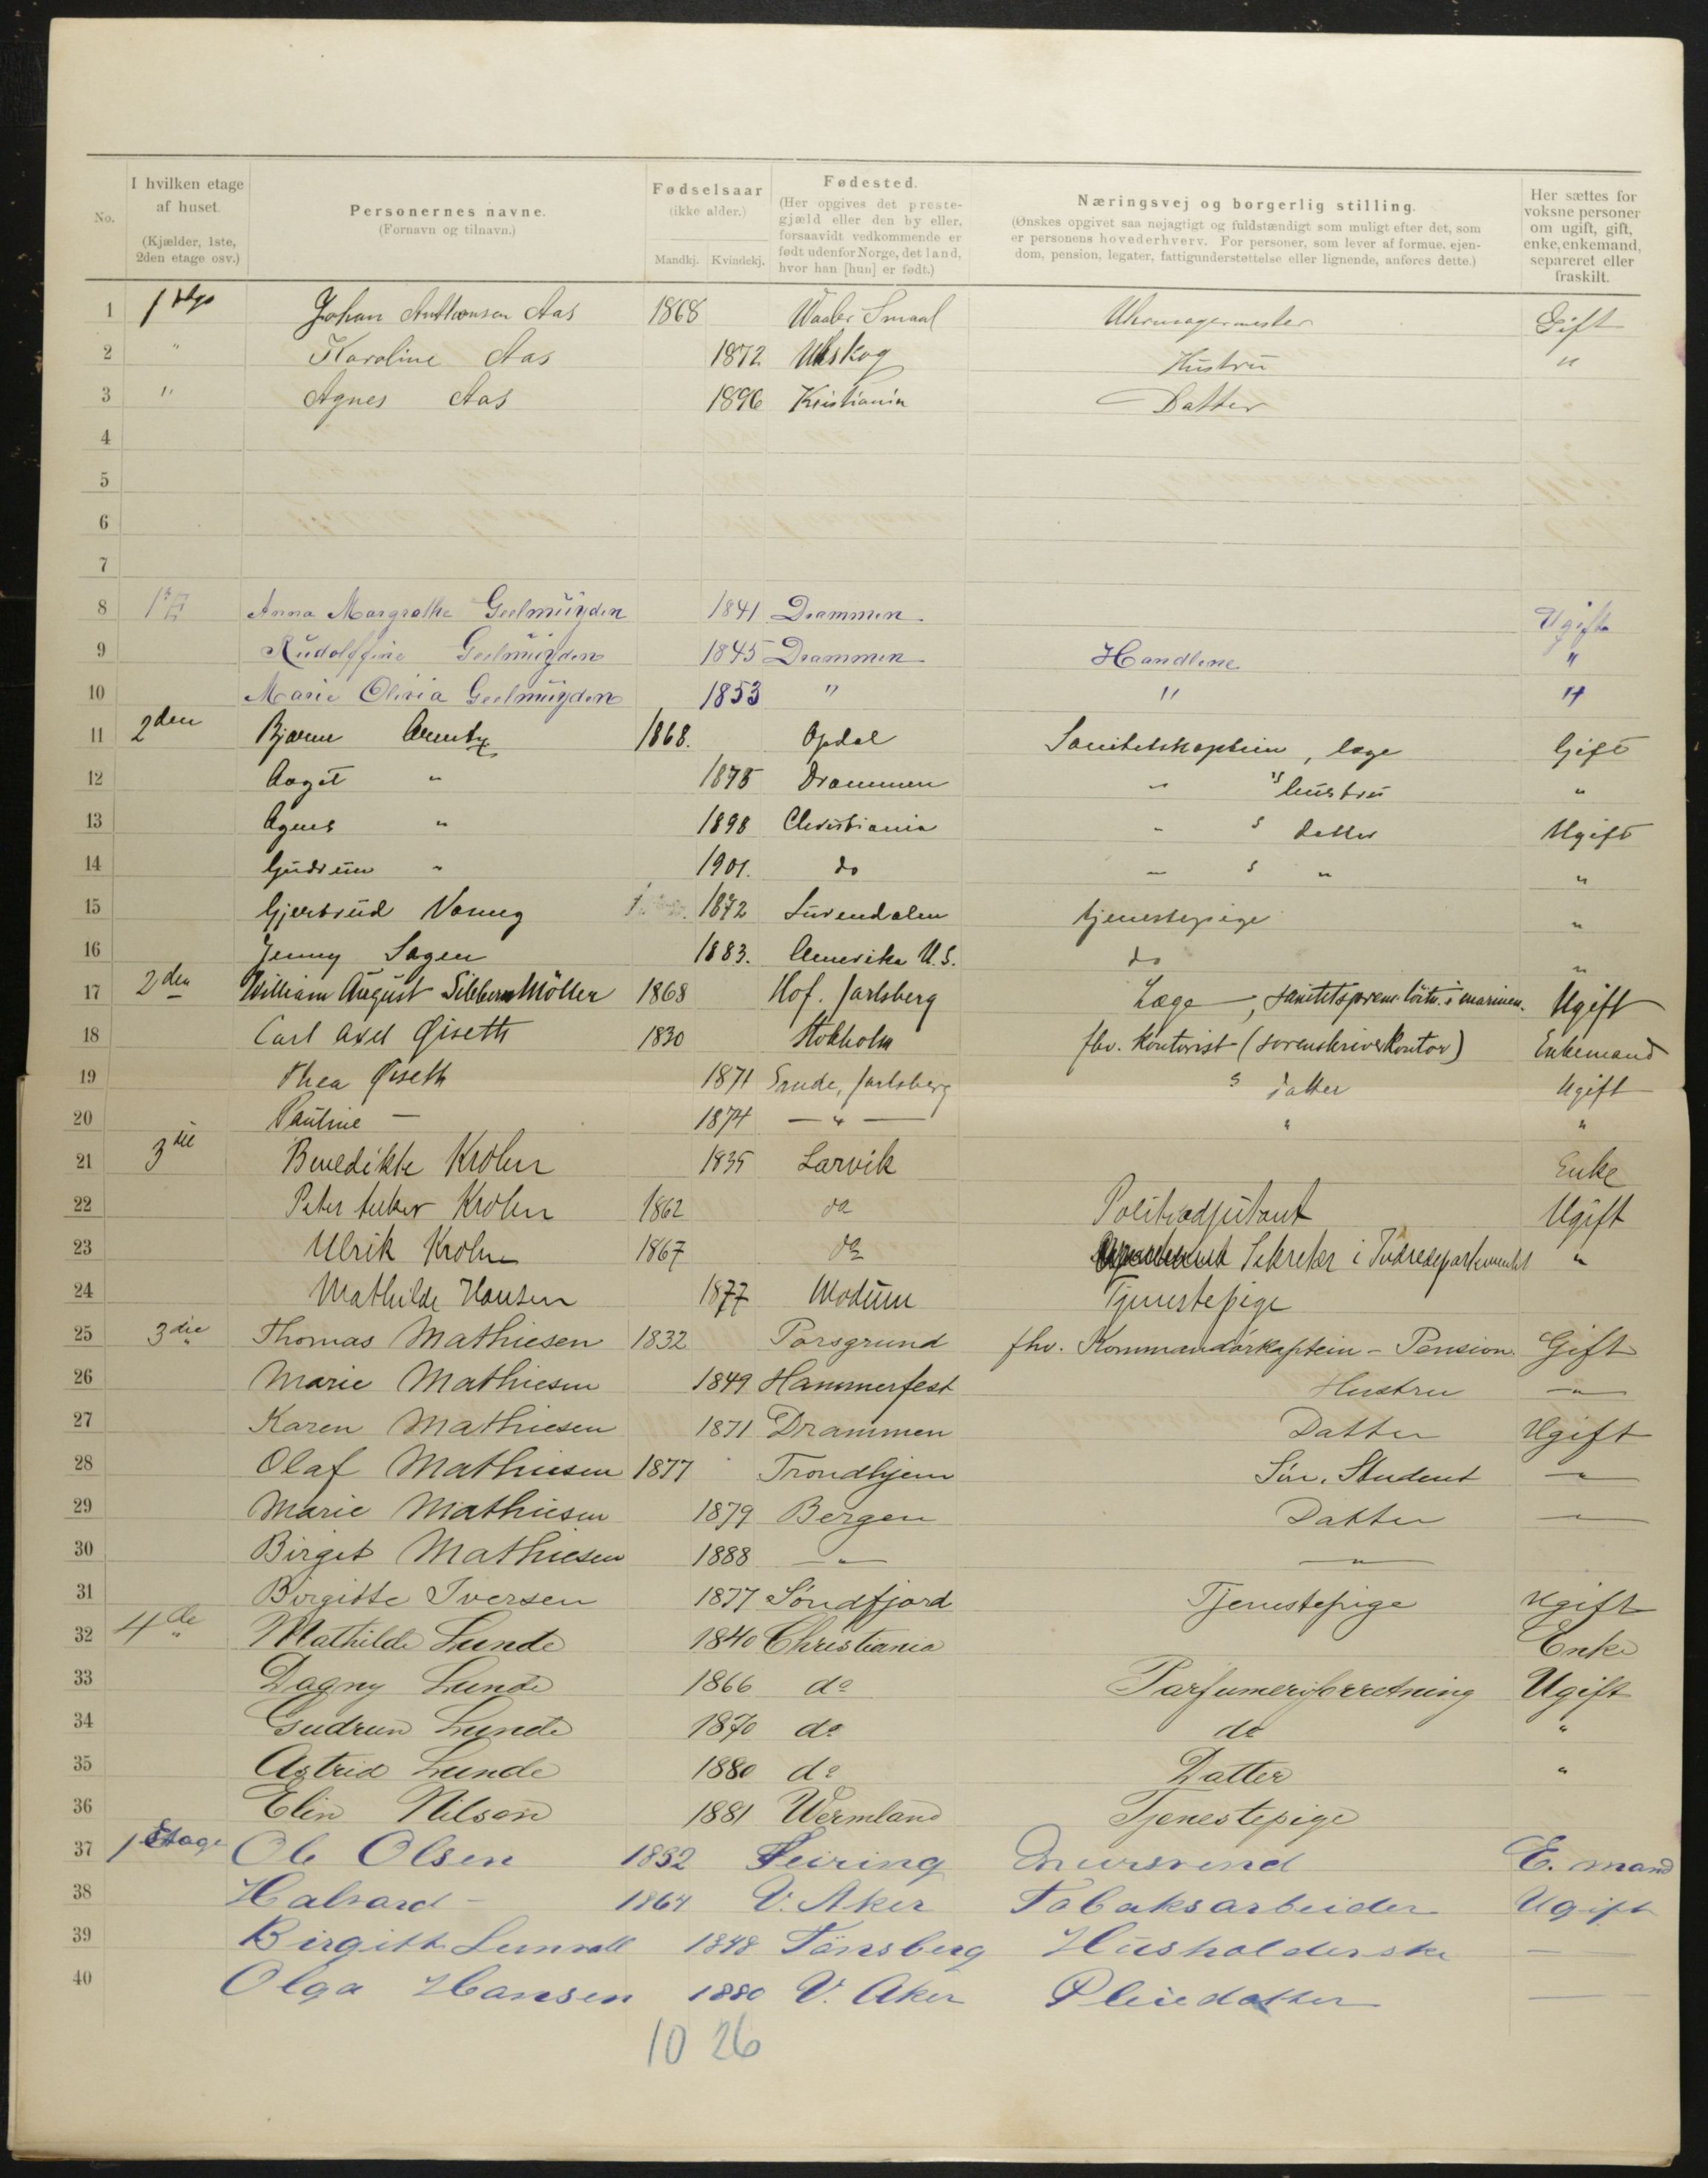 No.
I hvilken etage af huset. (Kjælder, 1ste, 2den etage osv.)
Personernes navne. (Fornavn og tilnavn.)
Fødselsaar (ikke alder.) Mandkj. Kvindekj.
Fødested. (Her opgives det prestegjæld eller den by eller, forsaavidt vedkommende er født udenfor Norge, det land, hvor han [hun] er født.)
Næringsvej og borgerlig stilling. (Ønskes opgivet saa nøjagtigt og fuldstændigt som muligt efter det, som er personens hovederhverv. For personer, som lever af formue, ejendom, pension, legater, fattigunderstøttelse eller lignende, anføres dette.)
Her sættes for voksne personer om ugift, gift, enke, enkemand, separeret eller fraskilt.
1 Johan Anthonsen Aas 1868 Waaler Smaal Uhrmagermester Gift
2 " Karoline Aas 1872 Urskog Hustru "
3 " Agnes Aas 1896 Kristiania Datter
4
5
6
7
8 Anna Margrethe Geelmüyden 1841 Drammen Ugift
9 Rudolffine Geelmüyden 1845 Drammen Handlene "
10 Marie Olivia Geelmüyden 1853 " " "
11 2den Bjarne 1868. Opdal Sanitetskaptein, læge Gift
12 Aagot " 1875 Drammen " s hustru "
13 Agnes " 1898 Christiania " s datter Ugift
14 Gudrun " 1901. do " s " "
15 Gjertrud 1872 Surendalen tjenestepige "
16 Jenny Sagen 1883. Amerika U.S. do "
17 2den William August Sibbern Möller 1868 Hof. Jarlsberg Læge, sanitetsprem.löitn. i marinen. Ugift
18 Carl Axel Øiseth 1830 Stokholm fhv. Kontorist (sorenskriverkontor) Enkemand
19 Thea Øiseth 1871 Sande, Jarlsberg s datter Ugift
20 Pauline — 1874 — " — " "
21 3die Benedikte Krohn 1835 Larvik Enke
22 Peter Krohn 1862 do Politiadjutant Ugift
23 Ulrik Krohn 1867 do Sekretær i Indredepartementet "
24 Mathilde Hansen 1877 Modum Tjenestepige
25 3die Thomas Mathiesen 1832 Porsgrund fhv. Kommandørkaptein - Pension. Gift
26 Marie Mathiesen 1849 Hammerfest Hustru — " —
27 Karen Mathiesen 1871 Drammen Datter Ugift
28 Olaf Mathiesen 1877 Trondhjem Sön, Student — " —
29 Marie Mathiesen 1879 Bergen Datter — " —
30 Birget Mathiesen 1888 — " — — " —
31 Birgitte Iversen 1877 Söndfjord Tjenestepige Ugift
32 4de Mathilde Lunde 1840 Christiania Enke
33 Dagny Lunde 1866 do Parfumeriforretning Ugift
34 Gudrun Lunde 1870 do do "
35 Astrid Lunde 1880 do Datter "
36 Elin Nilson 1881 Wermland Tjenestepige
37 1 Etage Ole Olsen 1832 Feiring Mursvend E. mand
38 Halvard — 1864 V. Aker Tobaksarbeider Ugift
39 Birgitte 1848 Tönsberg Husholderske —
40 Olga Hansen 1880 V. Aker Pleiedatter —
10 26